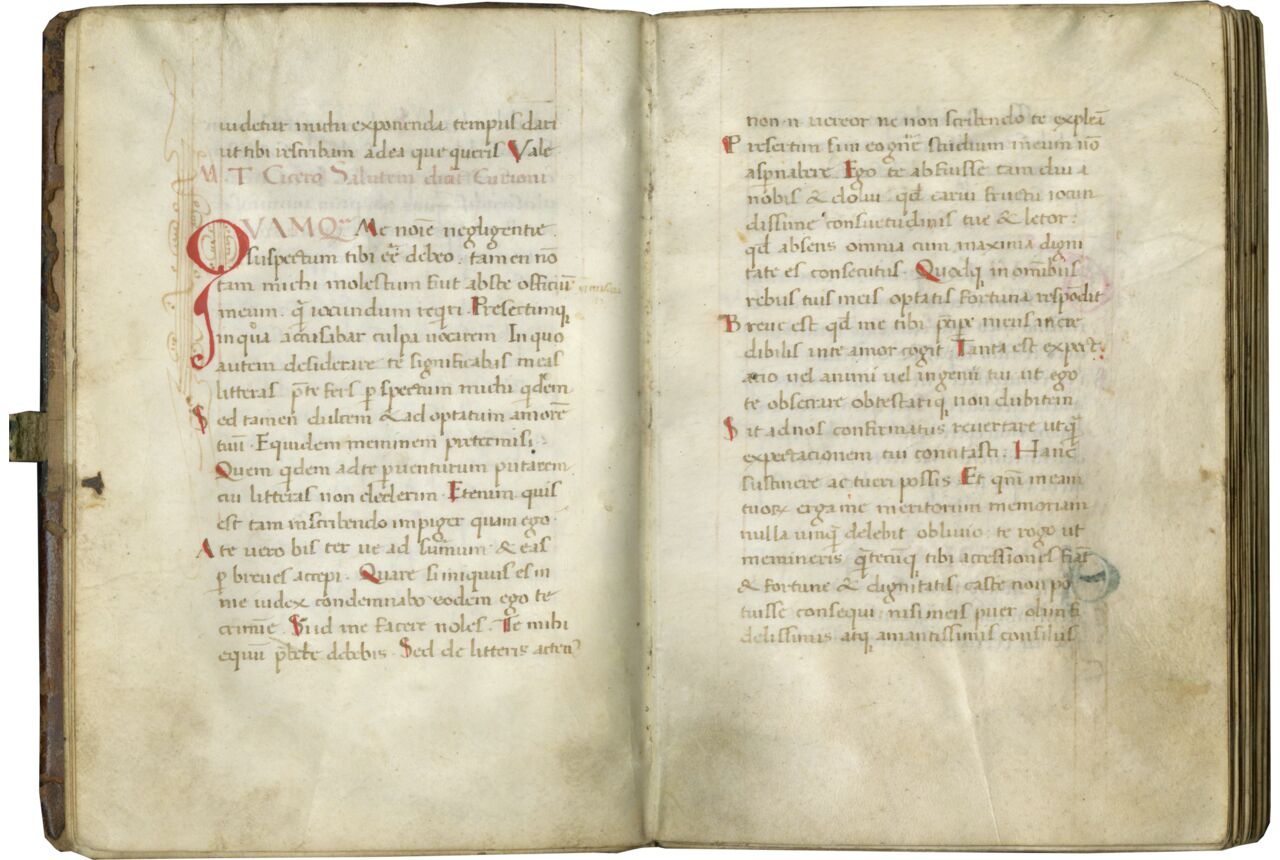 uidetur michi exponenda tempus dari
ut tibi rescribam adea que queris Vale
M T Cicero Salutem dicit Curioni
QVAMQ Me noīe negligentie
suspectum tibi eē debeo. tamen nō
tam michi molestum fuit abste officiū
meum. q̄ iocundum reqri. Presertimq
in qua accusabar culpa uacarem. In quo
autem desiderare te significabas meas
litteras p̄te fers pspectum michi qdem
Sed tamen dulcem & ad optatum amorē
tuū. Equidem neminem pretermisi.
Quem qdem adte puenturum putarem.
cui litteras non dederim. Etenim quis
est tam inscribendo impiger quam ego.
A te uero bis ter ue ad summum & eas
p breues accepi. Quare si iniquus es in
me iudex condemnabo eodem ego te
crimine. Sīid me facere noles. Te mihi
equū p̄bere debebis. Sed de litteris actenꝰ
non n uereor ne non scribendo te expleā
Presertim sim eo gn̄e studium meum nō
aspnabere. Ego te abfuisse tam diu a
nobis & dolui. qd carui fructu iocun
dissime consuetudinis tue & letor:
qd absens omnia cum maxima digni
tate es consecutus. Quodq in omībus
rebus tuis meis optatis fortuna respōdit
Breue est qd me tibi p̄cipe meus incre
dibilis inte amor cogit. Tanta est expect
atio uel animi uel ingenii tui ut ego
te obsecrare obtestariq non dubitem
Sit ad nos confirmatus reuertare ut q̄
expectacionem tui concitasti. Hanc
sustinere ac tueri possis. Et qm̄ meam
tuoꝝ erga me meritorum memoriam
nulla unq̄ delebit obliuio. te rogo ut
memineris q̄tecūq tibi accessiones fiāt
& fortune & dignitatis easte non po
tuisse consequi. nisi meis puer olim fi
delissimis atq amantissimis consiliis